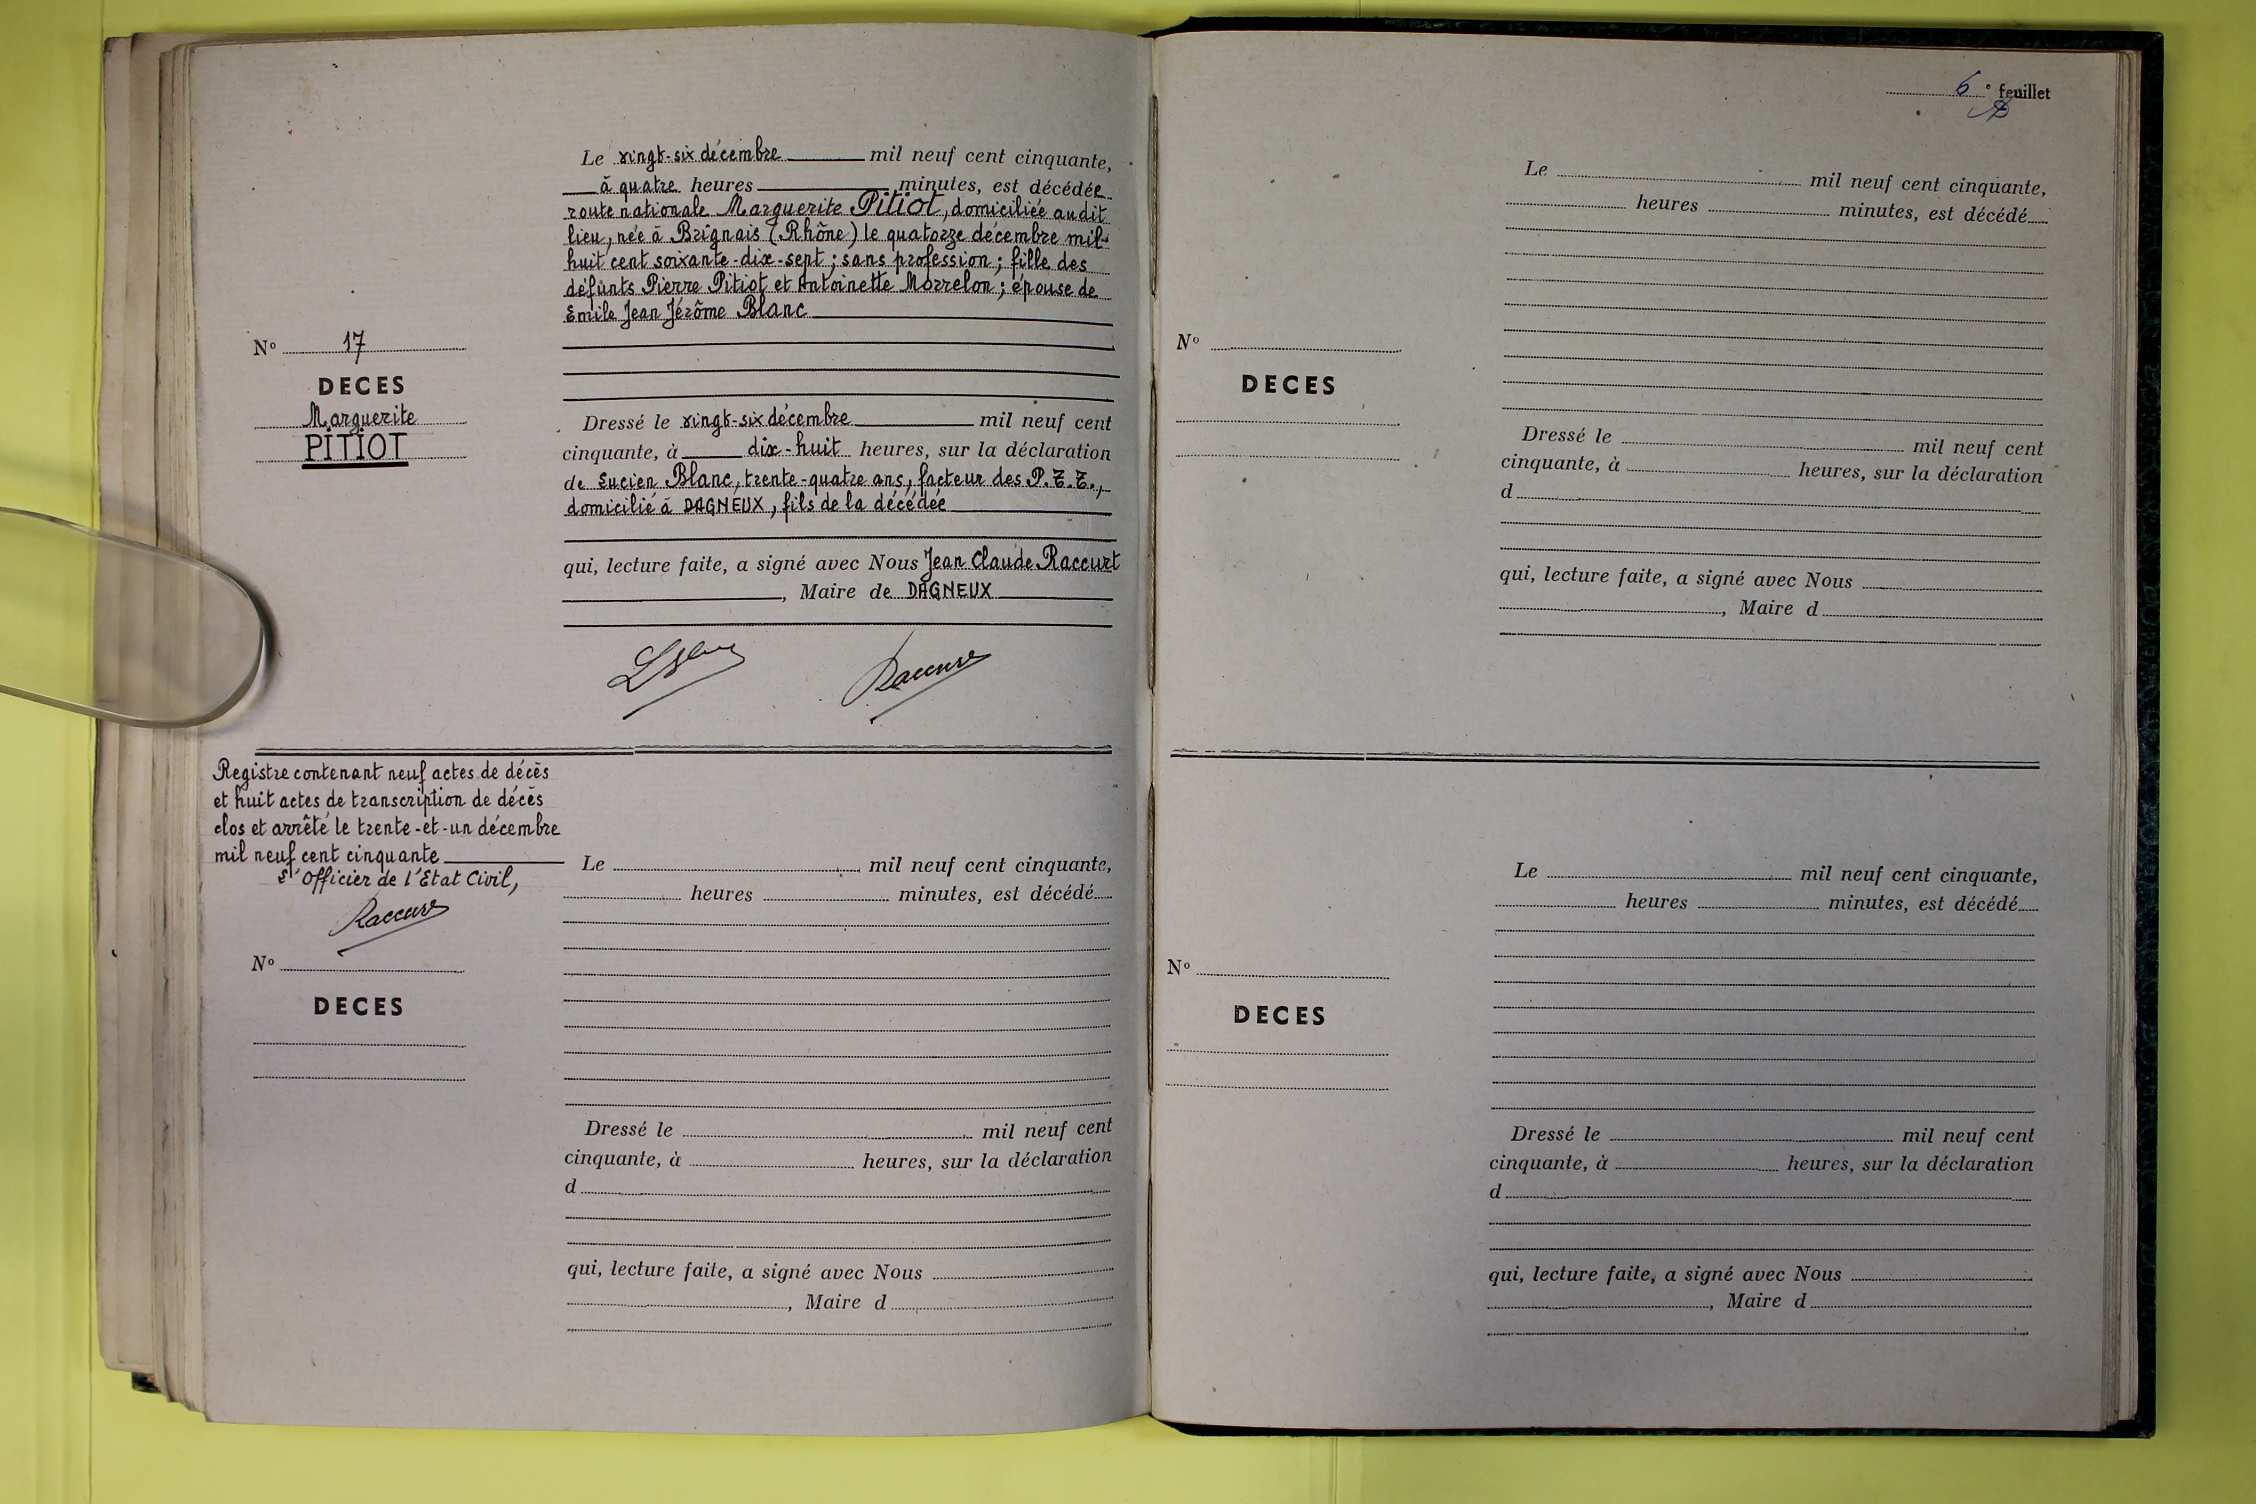 Le vingt-six décembre mil neuf cent cinquante,
à quatre heures minutes, est décédée
route nationale Marguerite Pitiot, domiciliée audit
lieu, née à Brignais (Rhône) le quatorze décembre mil-
huit cent soixante-dix-sept ; sans profession ; fille des
défunts Pierre Pitiot et Antoinette Morrelon ; épouse de
Emile Jean Jérôme Blanc
N° 17
DECES
Marguerite
PITIOT
Dressé le vingt-six décembre mil neuf cent
cinquante, à dix-huit heures, sur la déclaration
de Lucien Blanc, trente-quatre ans, facteur des P.T.T.,
domicilié à DAGNEUX, fils de la décédée
qui, lecture faite, a signé avec Nous Jean Claude Raccurt
, Maire de DAGNEUX
LBlanc
Raccurt
Registre contenant neuf actes de décès
et huit actes de transcription de décès
clos et arrêté le trente-et-un décembre
mil neuf cent cinquante
L'Officier de l'Etat Civil,
Raccurt
N°
DECES
Le mil neuf cent cinquante,
heures minutes, est décédé
Dressé le mil neuf cent
cinquante, à heures, sur la déclaration
d
qui, lecture faite, a signé avec Nous
, Maire d
6e feuillet
Le mil neuf cent cinquante,
heures minutes, est décédé
N°
DECES
Dressé le mil neuf cent
cinquante, à heures, sur la déclaration
d
qui, lecture faite, a signé avec Nous
, Maire d
Le mil neuf cent cinquante,
heures minutes, est décédé
N°
DECES
Dressé le mil neuf cent
cinquante, à heures, sur la déclaration
d
qui, lecture faite, a signé avec Nous
, Maire d